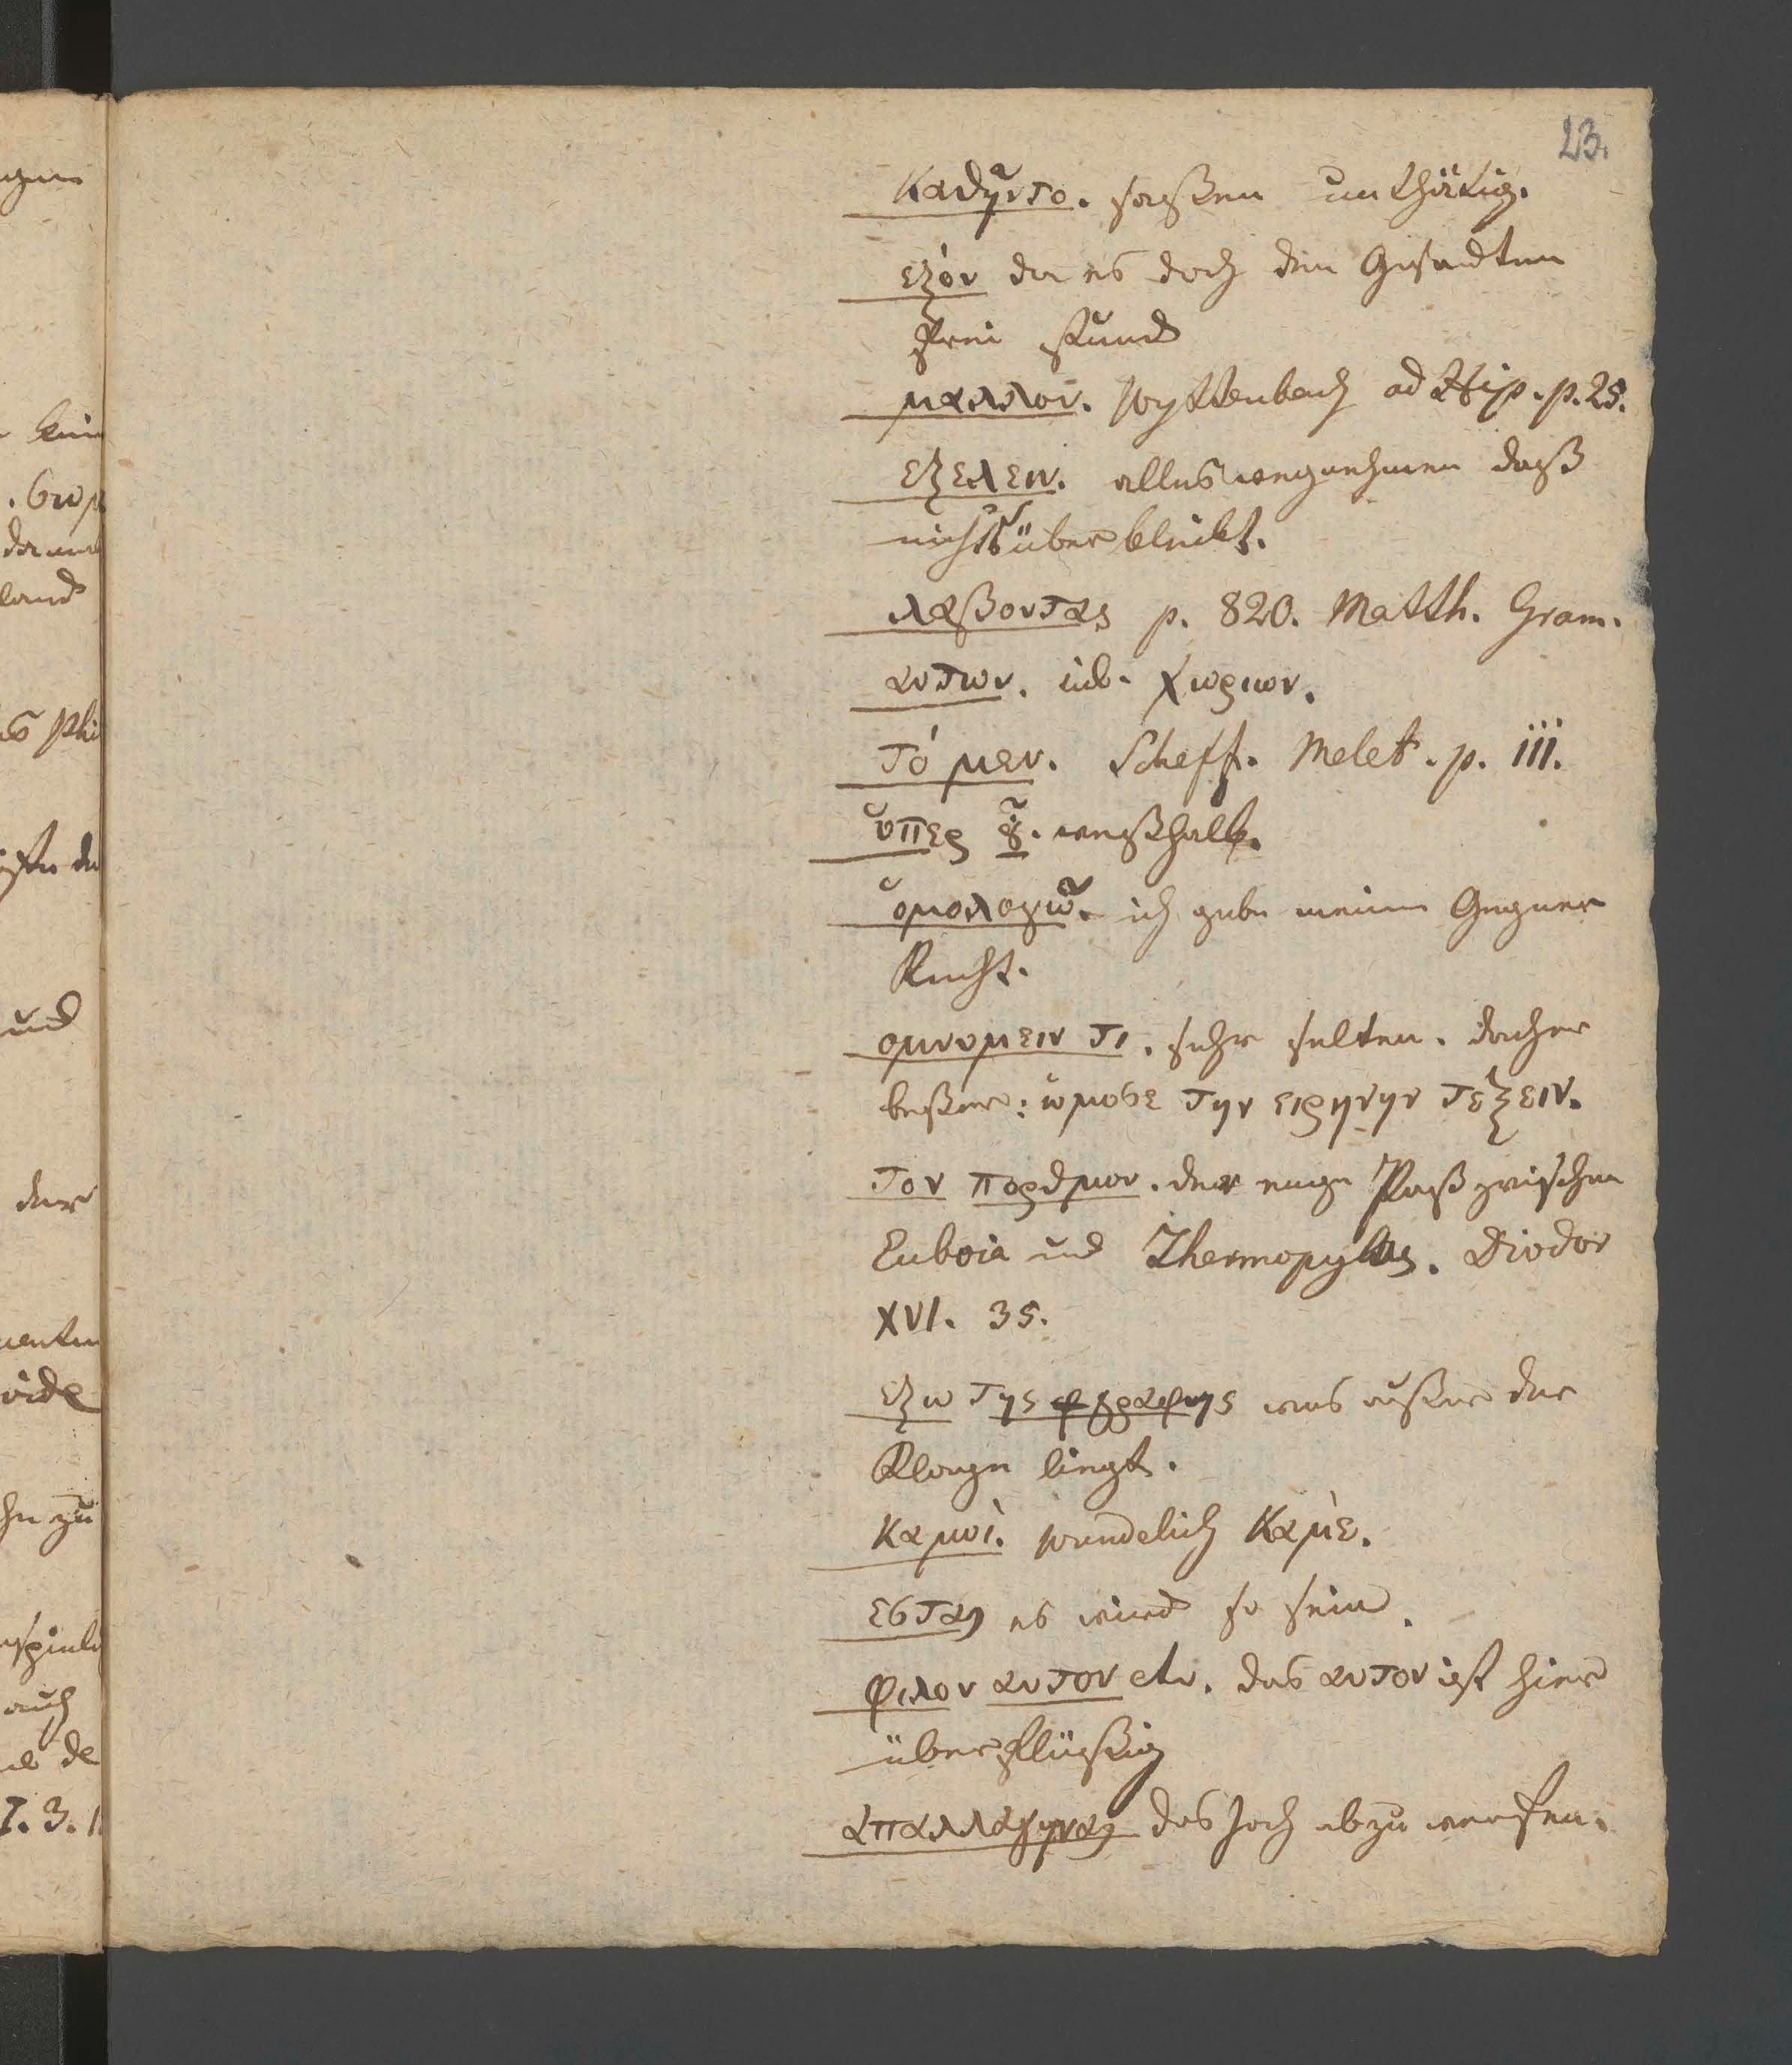 23.
καθῆντο. saßen unthätig.
εξόν da es doch den Gesandten
frei stund
μαλλον. Wyttenbach ad p. 25.
εξελειν. alles wegnehmen daß
nichts überbleibt.
λαβοντας p. 820. Matth. Gram.
αυτων. χωριων.
Τό μεν. Scheff. Melet. p. III.
ὑπερ οὗ. weßhalb.
ὁμολογῶ. ich gebe meinem Gegner
Recht.
ομνυμειν τι. sehr selten. daher
beßer: ὠμοσε την ειρηνην τεξειν.
τον πορθμον. der enge Paß zwischen
Euboia und Thermopylas. Diodor
XVI. 35.
εξω της γραφης was außer der
Klage liegt.
καμοί. καμέ.
εσται es wird so sein.
φιλον αυτον etc. das αυτον ist hier
überflüßig
απαλλαγηναι das Joch abzuwerfen.